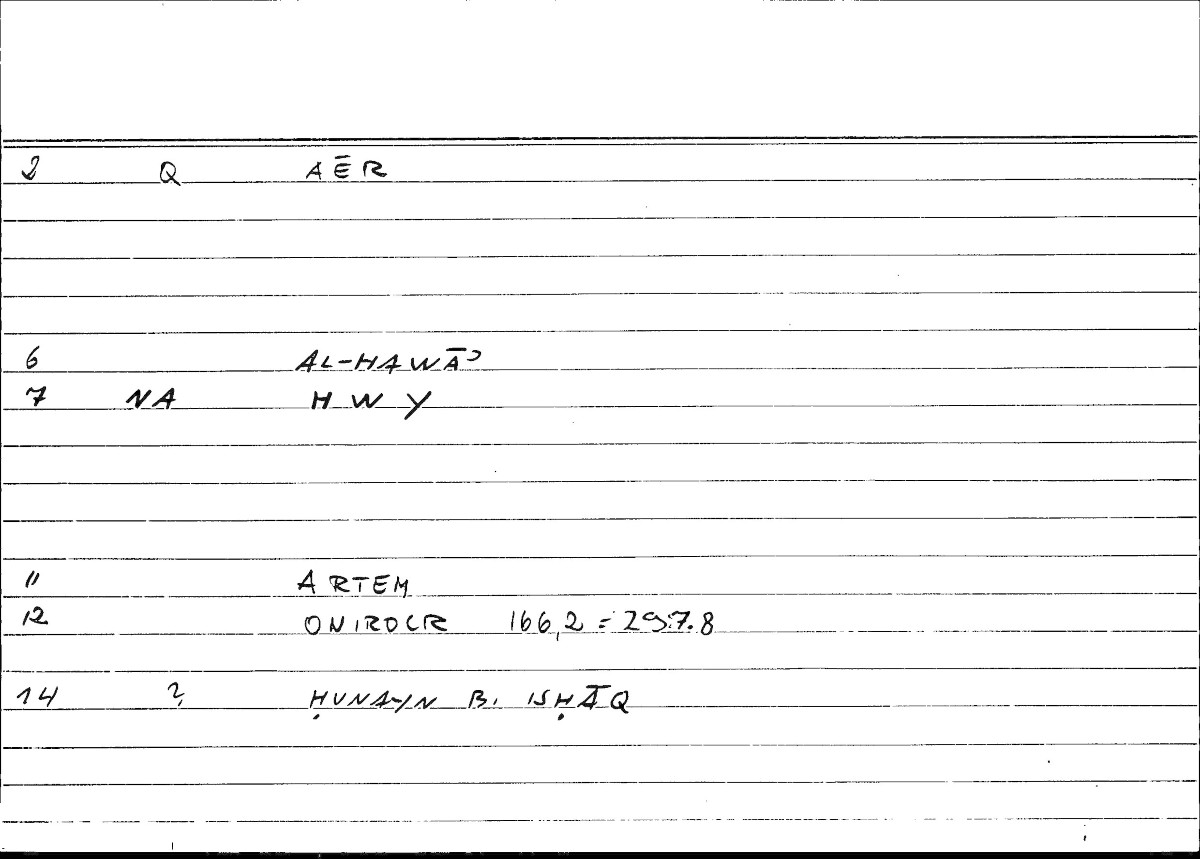 2 Q AĒR
6 AL-HAWĀʾ
7 NA H W Y
11 ARTEM
12 ONIROCR 166,2 = 297.8
14 ? ḤUNAYN B. ISḤĀQ